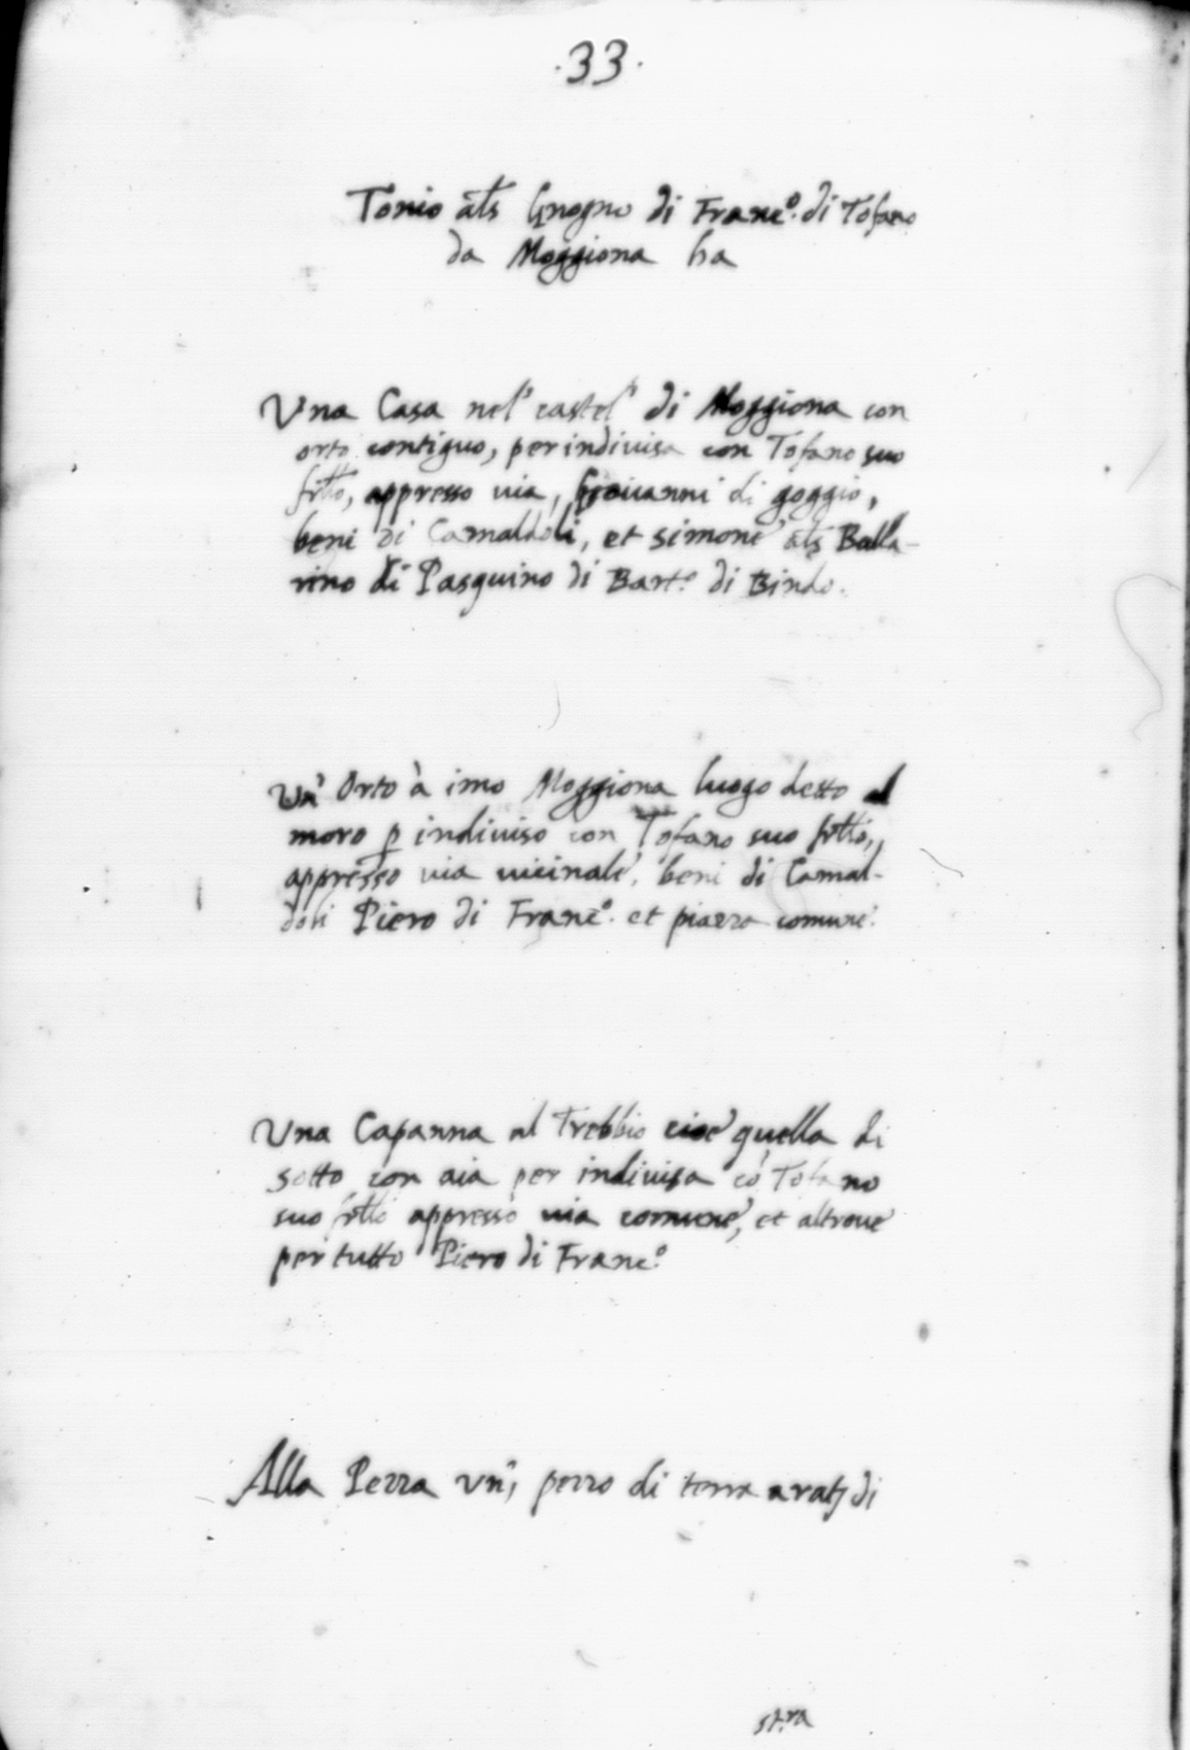 ·33·
Tonio als Gnogno di Franc.º di Tofano
da Moggiona ha
Una Casa nel castel di Moggiona con
orto contiguo, per indivisa con Tofano suo
frtło, appresso via, Giovanni di goggio,
beni di Camaldoli, et simone als Balla-
rino di Pasquino di Bart.º di Bindo.
Un' Orto à imo Moggiona luogo detto al
moro p indiuiso con Tofano suo frtło,
appresso uia uicinale, beni di Camal-
doli Piero di Franc.º et piazza comune.
Una Capanna al Trebbio cioè quella di
sotto con aia per indiuisa cō Tofano
suo frtło appresso uia comune, et altroue
per tutto Piero di Franc.º
Alla Pezza un, pezzo di terra arat, di
st.ra